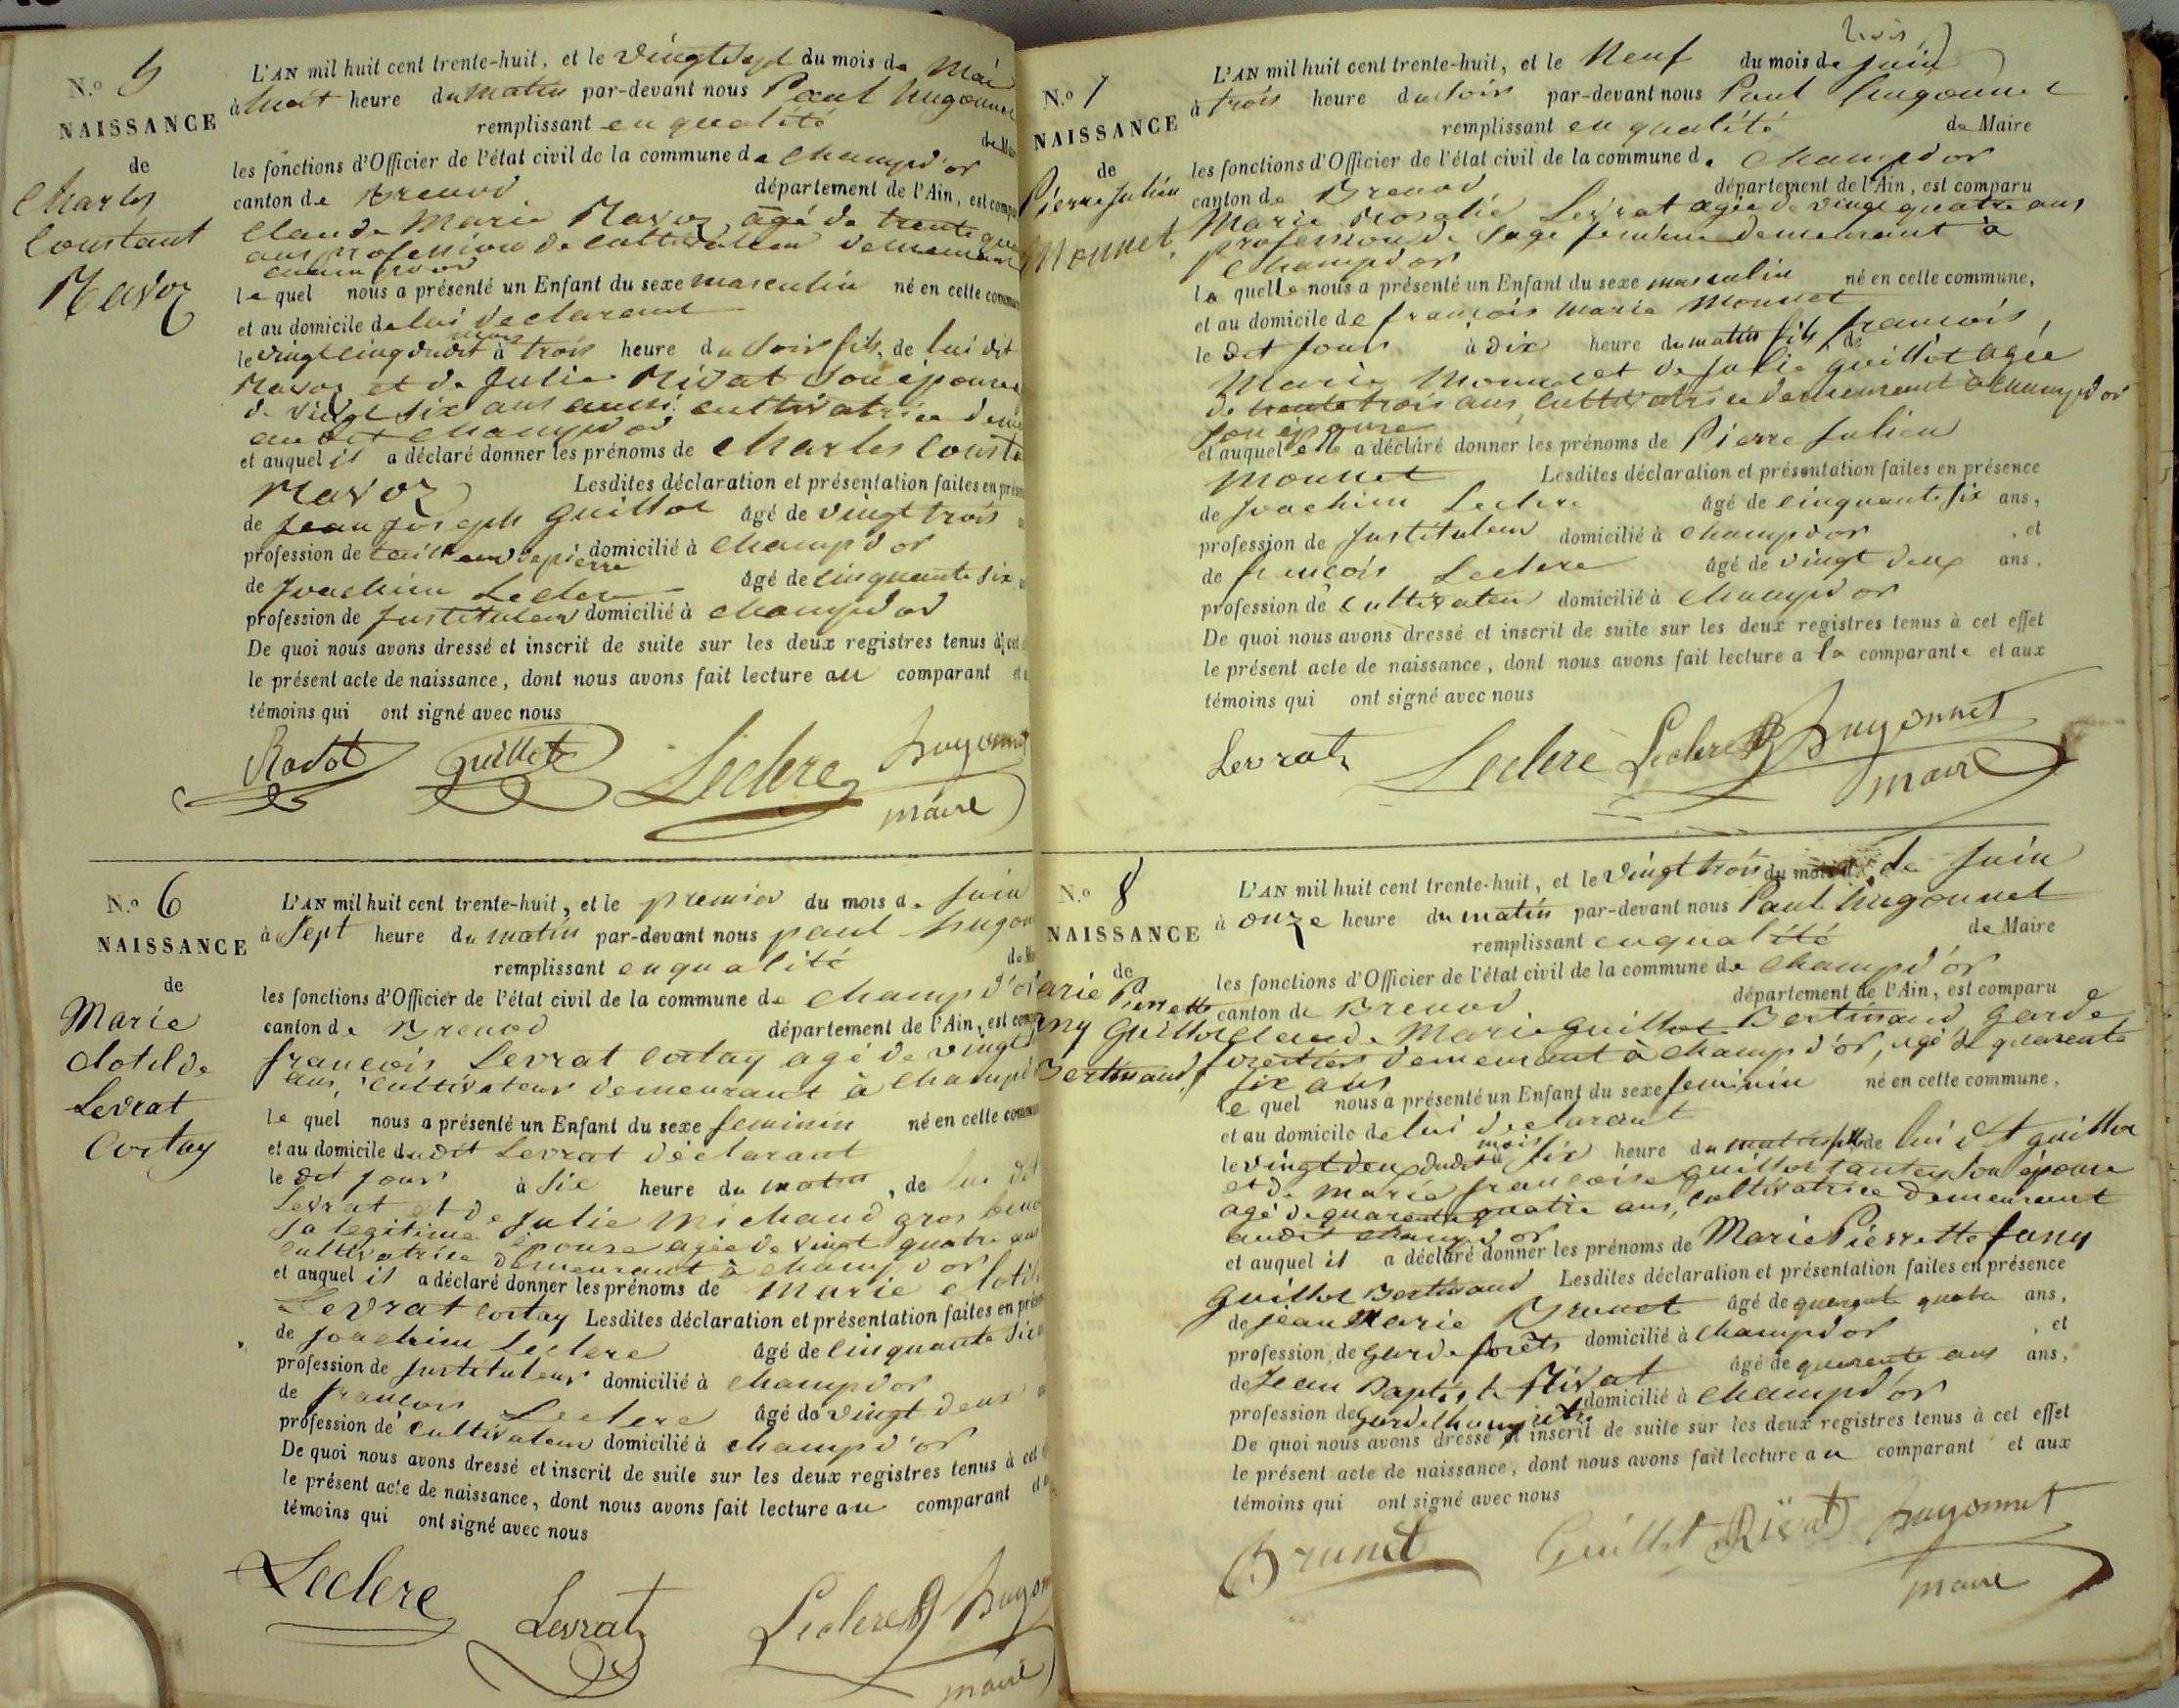 N.o 5
NAISSANCE
de
Charles
Constant
Ravoz
L'AN mil huit cent trente-huit, et le vingt sept du mois de Mai
à huit heure du matin par-devant nous Paul hugonnet
remplissant en qualité de
les fonctions d'Officier de l'état civil de la commune de champd'or
canton de Brenod département de l'Ain, est
Claude Marie Ravoz, agé de trente
ans profession de Cultivateur
champd'or
le quel nous a présenté un Enfant du sexe masculin né en cette
et au domicile de lui declarant
le vingt cinq dudit mois à trois heure du soir fils, de lui dit
Ravoz et de Julie Rivat son epouse
de vingt six ans aussi cultivatrice
audit champd'or
et auquel il a déclaré donner les prénoms de Charles
Ravoz Lesdites déclaration et présentation faites en
de Jean Joseph Guillot âgé de vingt trois
profession de tailleur de pierre domicilié à champd'or
de Joachim Leclerc âgé de cinquante six
profession de Instituteur domicilié à champd'or
De quoi nous avons dressé et inscrit de suite sur les deux registres tenus à cet
le présent acte de naissance, dont nous avons fait lecture au comparant
témoins qui ont signé avec nous
Guillot Leclerc hugonnet
maire
N.o 6
NAISSANCE
de
Marie
Clotilde
Levrat
Cortay
L'AN mil huit cent trente-huit, et le premier du mois de Juin
à Sept heure du matin par-devant nous paul
remplissant en qualité de
les fonctions d'Officier de l'état civil de la commune de champd'or
canton de Brenod département de l'Ain, est
françois Levrat Cortay agé de vingt
ans, cultivateur demeurant à
le quel nous a présenté un Enfant du sexe feminin né en cette
et au domicile dudit Levrat déclarant
le dit jour à six heure du matin, de lui dit
Levrat et de Julie Michaud gros
sa legitime epouse agée de vingt quatre ans
cultivatrice demeurant à champd'or
et auquel il a déclaré donner les prénoms de Marie
Levrat Cortay Lesdites déclaration et présentation faites en
de Joachim Leclere âgé de cinquante six
profession de Instituteur domicilié à champd'or
de françois Leclere âgé de vingt deux
profession de Cultivateur domicilié à champd'or
De quoi nous avons dressé et inscrit de suite sur les deux registres tenus à cet
le présent acte de naissance, dont nous avons fait lecture au comparant
témoins qui ont signé avec nous
Leclere Levrat Leclere
maire
N.o 7
NAISSANCE
de
Pierre Julien
Monnet
trois
L'AN mil huit cent trente-huit, et le Neuf du mois de juin
à trois heure du soir par-devant nous Paul hugonnet
remplissant en qualité de Maire
les fonctions d'Officier de l'état civil de la commune de Champd'or
canton de Brenod département de l'Ain, est comparu
Marie Rosalie Levrat agée de vingt quatre ans
profession de Sage femme demeurant à
Champd'or
la quelle nous a présenté un Enfant du sexe masculin né en cette commune,
et au domicile de françois Marie Monnet
le dit jour à dix heure du matin fils de françois
Marie Monnet et de Julie guillot agée
de trente trois ans, cultivatrice demeurant à champd'or
son épouse
et auquel elle a déclaré donner les prénoms de Pierre Julien
Monnet Lesdites déclaration et présentation faites en présence
de Joachim Leclere âgé de cinquante six ans,
profession de Instituteur domicilié à champd'or, et
de françois Leclere âgé de vingt deux ans,
profession de Cultivateur domicilié à champd'or
De quoi nous avons dressé et inscrit de suite sur les deux registres tenus à cet effet
le présent acte de naissance, dont nous avons fait lecture a la comparante et aux
témoins qui ont signé avec nous
Levrat Leclere Leclere hugonnet
maire
N.o 8
NAISSANCE
de
arie Pierrette
Guillot
Bertinand
L'AN mil huit cent trente-huit, et le vingt trois du mois de Juin
à onze heure du matin par-devant nous Paul hugonnet
remplissant en qualité de Maire
les fonctions d'Officier de l'état civil de la commune de champd'or
canton de Brenod département de l'Ain, est comparu
claude Marie Guillot Bertinand garde
forestier demeurant à champd'or, agé de quarente
six ans
le quel nous a présenté un Enfant du sexe feminin né en cette commune,
et au domicile de lui declarant
le vingt deux dudit mois à six heure du matin de lui dit guillot
et de Marie françoise guillot tantey son épouse
agé de quarente quatre ans, cultivatrice demeurant
audit champd'or
et auquel il a déclaré donner les prénoms de Marie Pierrette fany
Guillot Bertinand Lesdites déclaration et présentation faites en présence
de jean Marie Brunet âgé de quarente quatre ans,
profession de Garde forêts domicilié à champd'or, et
de Jean Baptiste Rivat âgé de quarente ans ans,
profession de Garde champêtre domicilié à champd'or
De quoi nous avons dressé et inscrit de suite sur les deux registres tenus à cet effet
le présent acte de naissance, dont nous avons fait lecture au comparant et aux
témoins qui ont signé avec nous
Brunet Guillot Rivat hugonnet
maire